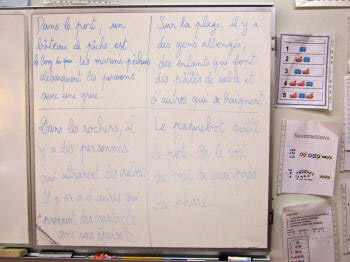 Dans le port, un
bâteau de pêche est
le long du quai. Les marins-pêcheurs
débarquent les poissons
avec une grue.
Sur la plage, il y a
des gens allongés,
des enfants qui font
des pâtés de sable et
d'autres qui se baignent.
Dans les rochers, il
y a des personnes
qui attrapent des
Il y en a d'autres qui
prennent des crustacés
avec une épuisette.
Le paquebot quitte
le port. On le voit
au près
du phare.
1
2
3
4
5
Soustractions